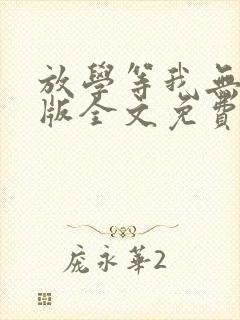 放學等我無
版全文免費
庞永華2